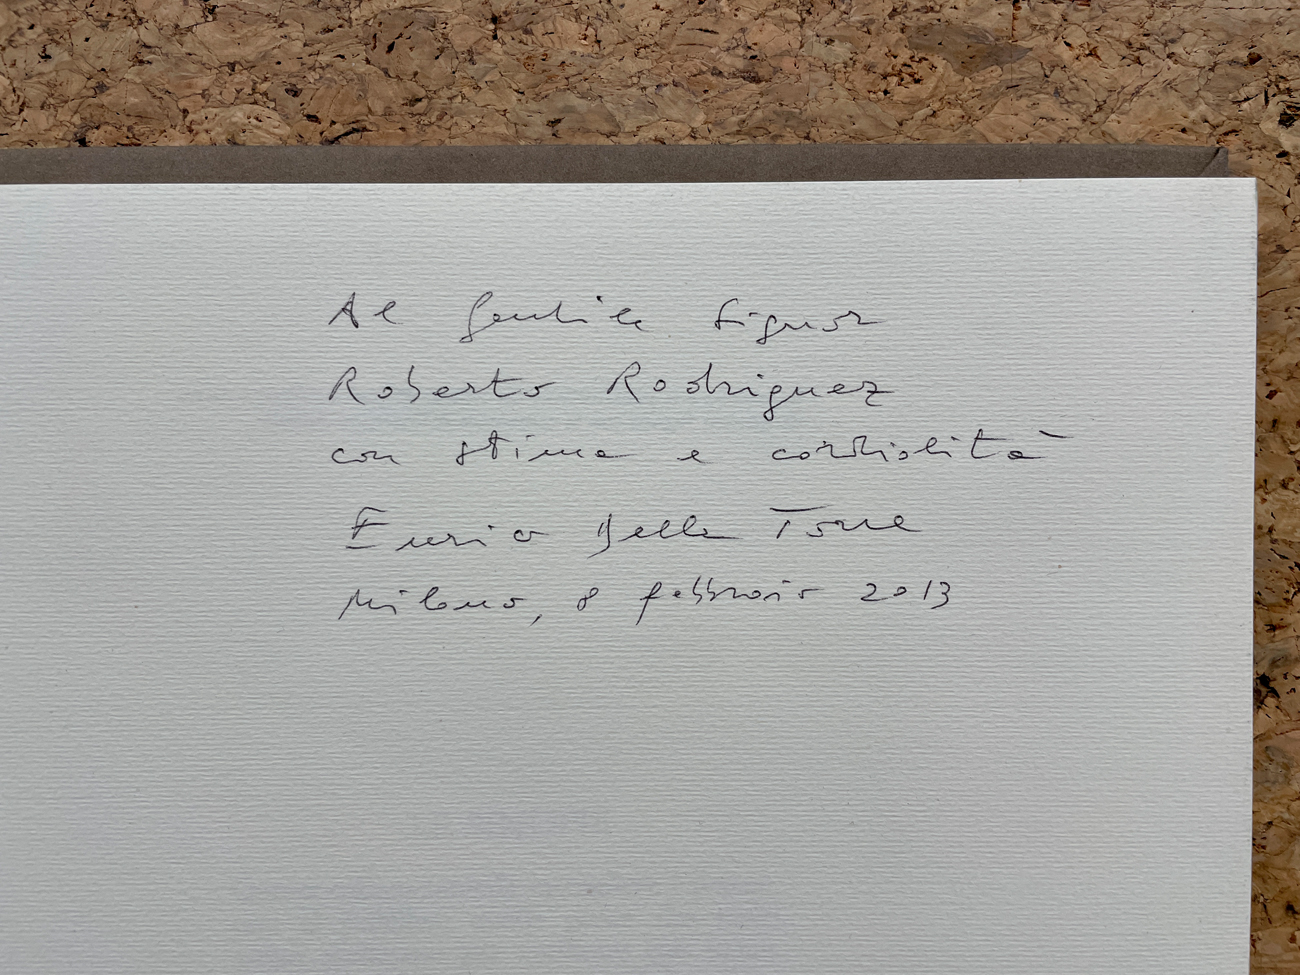 Al gentile Signor
Roberto Rodriguez
con stima e cordialità
Enrico Della Torre
Milano, 8 febbraio 2013